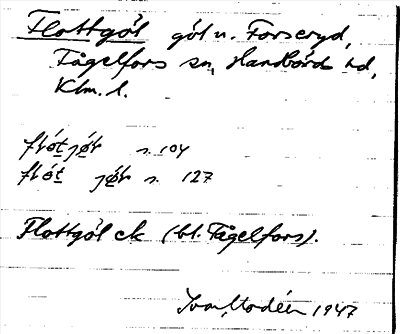 Flottgöl göl u. Forseryd,
Fågelfors sn, Handbörd hd,
Klm. l.
s. 104
s. 127
Flottgöl ek (bl. Fågelfors).
Ivar Modéer 1947